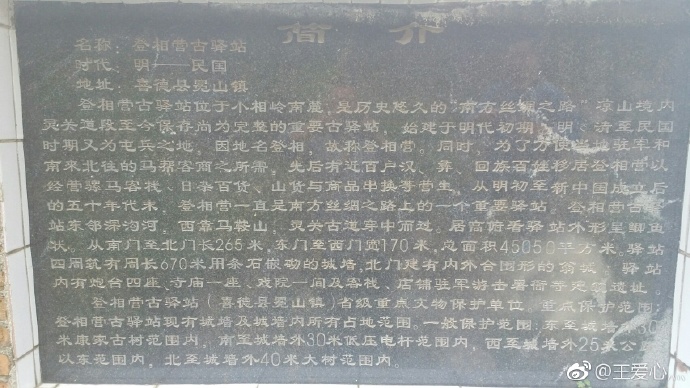 简介
名称：登相营古驿站
时代：明——民国
地址：喜德县冕山镇
登相营古驿站位于小相岭南麓，是历史悠久的“南方丝绸之路”凉山境内
灵关道段至今保存尚为完整的重要古驿站，始建于明代初期，明、清至民国
时期又为屯兵之地，因地名登相，故称登相营。同时，为了方便当地驻军和
南来北往的马帮客商之所需，先后有近百户汉、彝、回族百姓移居登相营以
经营骡马客栈、日杂百货、山货与商品串换等营生，从明初至新中国成立后
的五十年代末，登相营一直是南方丝绸之路上的一个重要驿站。登相营古驿
站东邻深沟河，西靠马鞍山，灵关古道穿中而过。居高俯看驿站外形呈鲫鱼
状。从南门至北门长265米，东门至西门宽170米，总面积45050平方米。驿站
四周筑有周长670米用条石嵌砌的城墙，北门建有内外合围形的瓮城，驿站
内有炮台四座、寺庙一座、戏院一间及客栈、店铺驻军游击署衙等遗址
登相营古驿站（喜德县冕山镇）省级重点文物保护单位，重点保护范围：
登相营古驿站现有城墙及城墙内所有占地范围。一般保护范围：东至城墙外30
米康家古树范围内，南至城墙外30米低压电杆范围内，西至城墙外25米公
以东范围内，北至城墙外40米大树范围内。
@王爱心